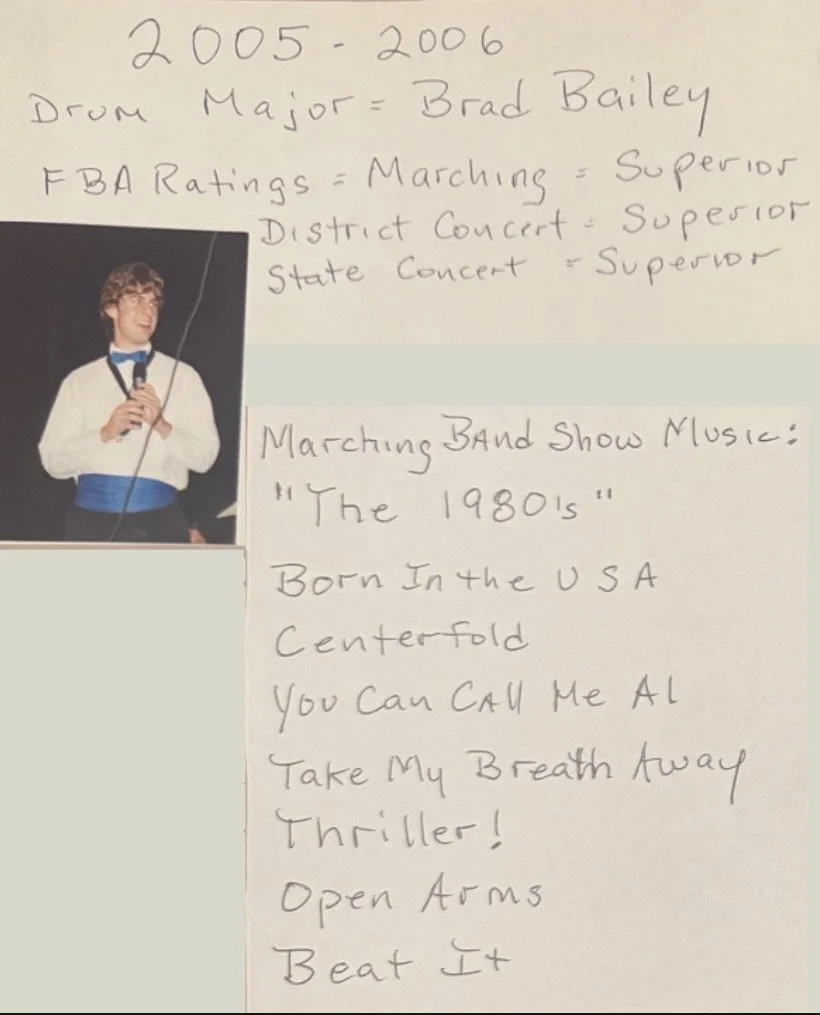 2005 - 2006
Drum Major = Brad Bailey
FBA Ratings = Marching = Superior
District Concert = Superior
State Concert = Superior
Marching BAnd Show Music:
"The 1980's"
Born In the USA
Centerfold
You Can CAll Me Al
Take My Breath Away
Thriller!
Open Arms
Beat It